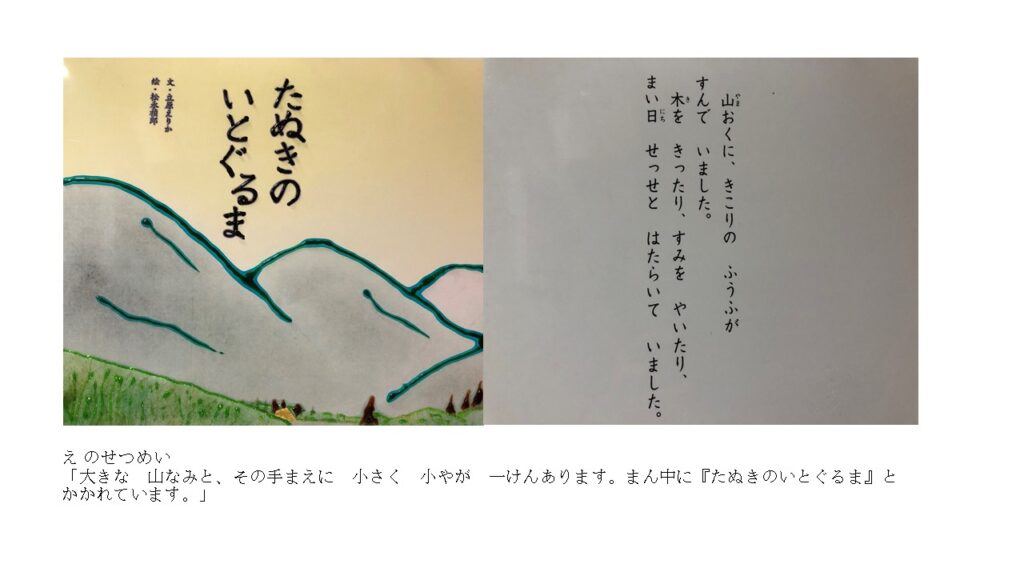 たぬきの
いとぐるま
文・立原えりか
絵・松永禎郎
山おくに、きこりの　ふうふが
やま
すんで　いました。
木を　きったり、すみを　やいたり、
き
まい日　せっせと　はたらいて　いました。
にち
え のせつめい
「大きな　山なみと、その手まえに　小さく　小やが　一けんあります。まん中に『たぬきのいとぐるま』と
かかれています。」